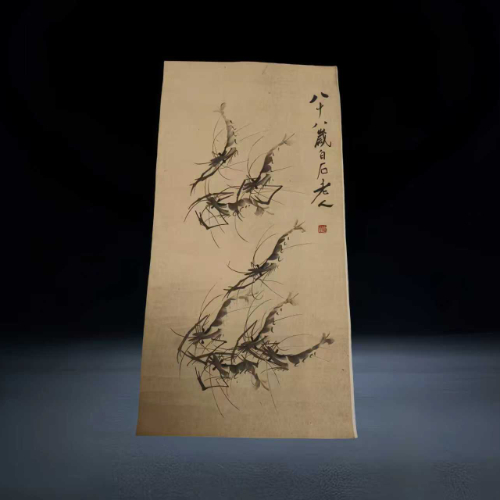 八十八歲白石老人